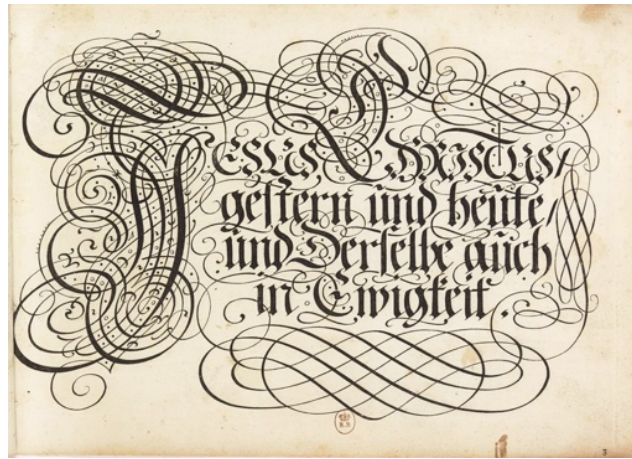 JESUS CHRISTUS/
gestern und heute/
und Derselbe auch
in Ewigkeit.
3